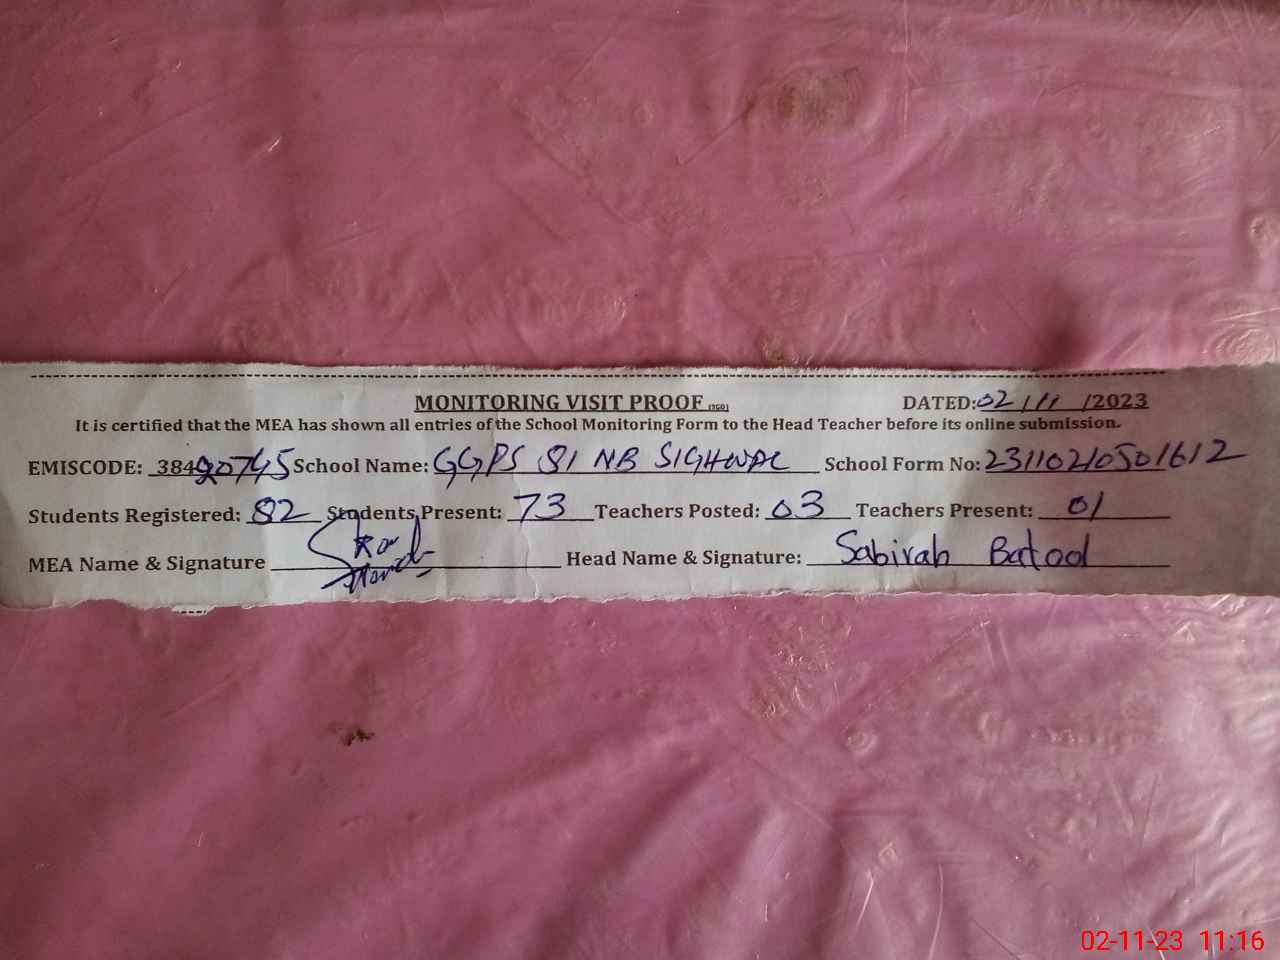 MONITORING VISIT PROOF DATED: 02/11/2023
It is certified that the MEA has shown all entries of the School Monitoring Form to the Head Teacher before its online submission.
EMISCODE: 38490745 School Name: GGPS 81 NB SIGHWAL School Form No: 23110210501612
Students Registered: 82 Students Present: 73 Teachers Posted: 03 Teachers Present: 01
MEA Name & Signature Head Name & Signature: Sabirah Batool
02-11-23 11:16